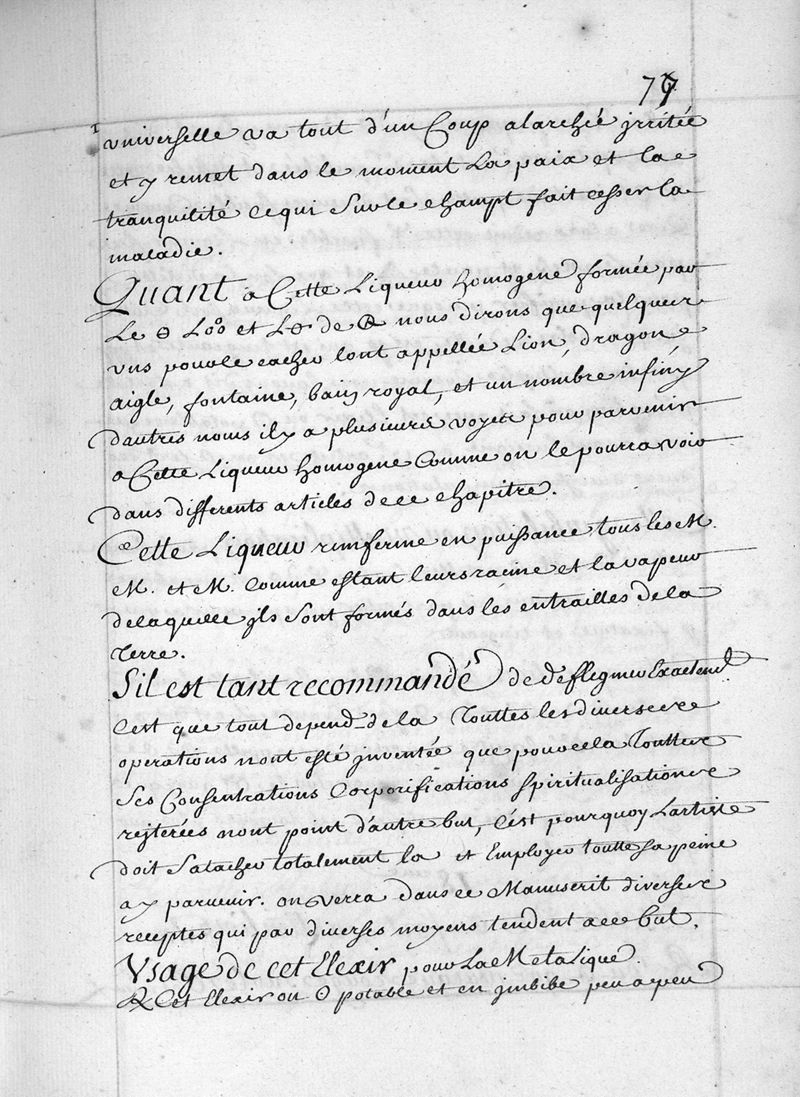 77
universelle va tout d'un Coup alarchée jrritée
et y remet dans le moment La paix et la
tranquilité cequi sur le champt fait cesser la
maladie.
Quant a Cette Liqueur homogene formée par
Le et de nous dirons que quelques
uns pour le cacher lont appellée Lion, dragon
aigle, fontaine, bain royal, et un nombre infiny
dautres noms il y a plusieures voyes pour parvenir
a Cette Liqueur homogene Comme on le pourra voir
dans differents articles de ce chapitre.
Cette Liqueur renferme en puissance tous les M.
M. et M. Comme estant leurs racine et la vapeur
delaquelle jls sont formés dans les entrailles de la
Terre.
S'il est tant recommandé de deflegmer Exactemt
C'est que tout depend de la Touttes les diverses
operations nont esté jnventée que pour cela Touttes
ses Consentrations Corporifications spiritualisations
rejterées nont point d'autre but, C'est pourquoy Lartiste
doit Satacher totalement la et Employer toutte sa peine
a y parvenir. on verra dans ce Manuscrit diverses
receptes qui par diverses moyens tendent a ce but.
Usage de cet Elexir pour La Metalique.
Cet Elexir ou potable et en jmbibe peu a peu